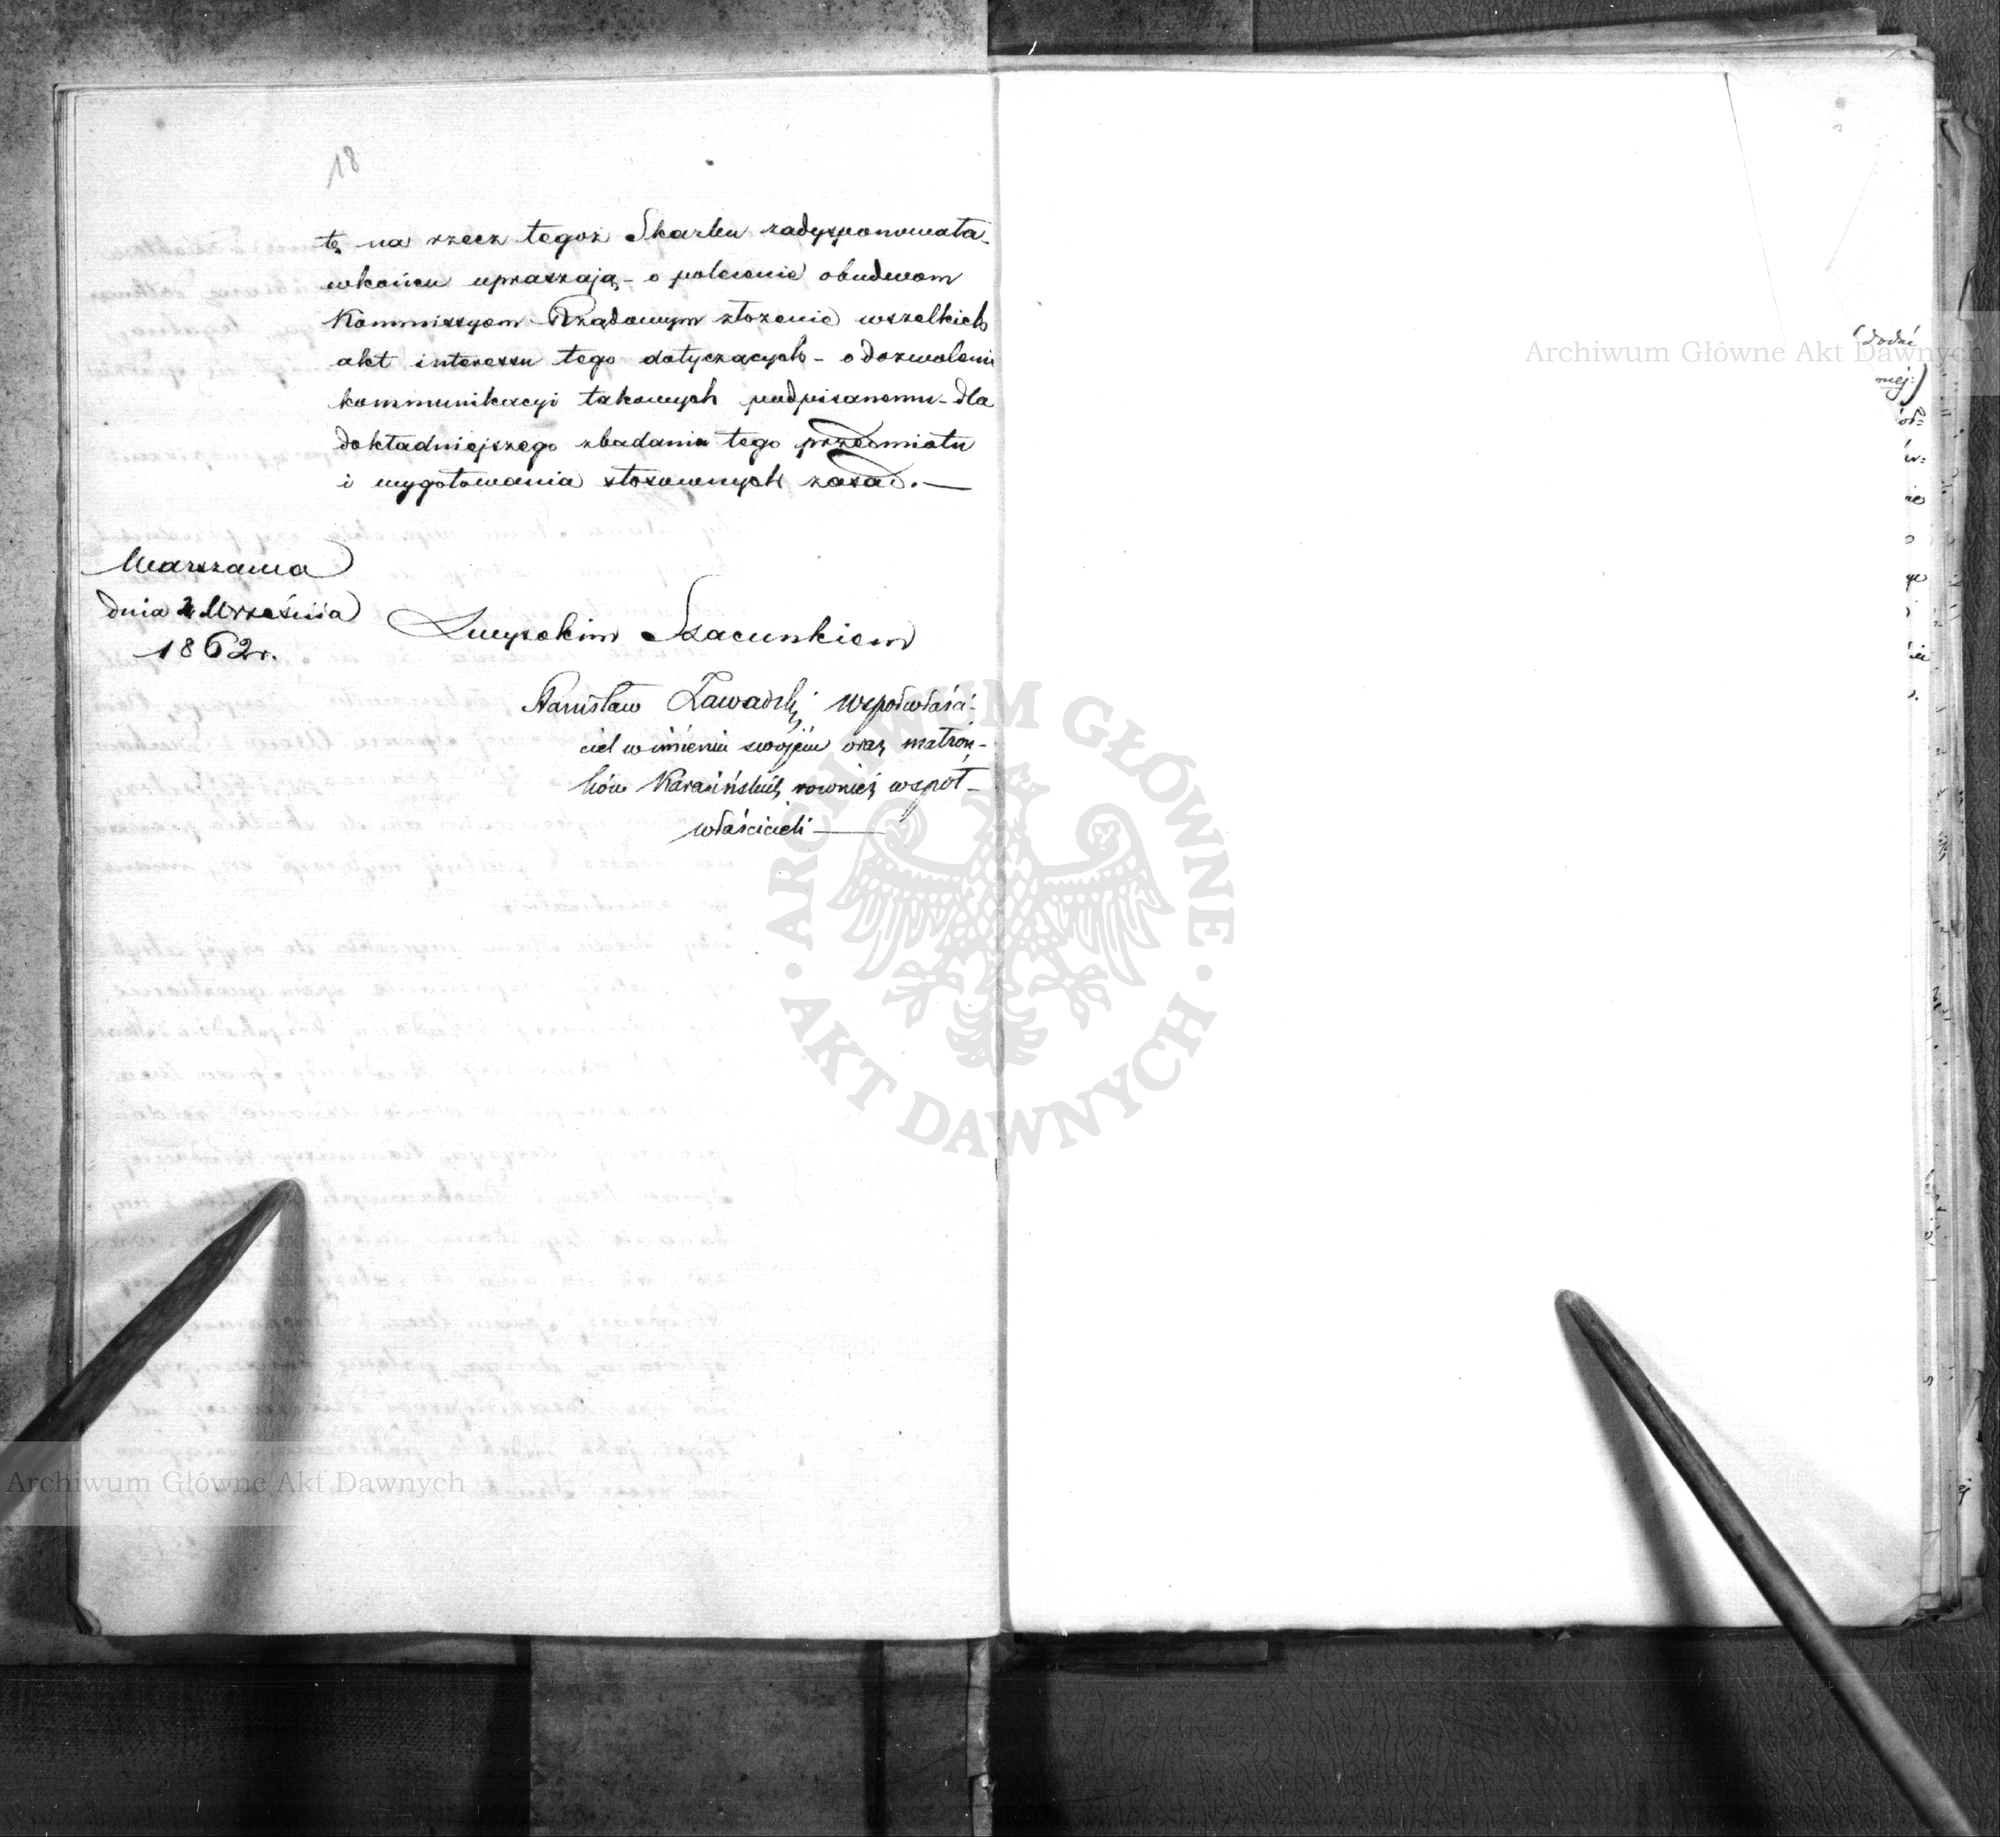 18
tę na rzecz tegoż Skarbu zadysponowała -
wkońcu upraszają - o polecenie obudwom
Kommissyom Rządowym złożenie wszelkich
akt interessu tego dotyczących - o dozwolenie
kommunikacyi takowych podpisanemu - dla
dokładniejszego zbadania tego przedmiotu
i wygotowania stosownych zasad. —
Warszawa
dnia 2 Września
1862 r.
Z wysokim Szacunkiem
Stanisław Zawadzki współwłaści-
ciel w imieniu swojém oraz małżon-
ków Karasińskich, rownież współ-
właścicieli —
(dodać
niej:)
ARCHIWUM GŁÓWNE · AKT DAWNYCH ·
Archiwum Główne Akt Dawnych
Archiwum Główne Akt Dawnych